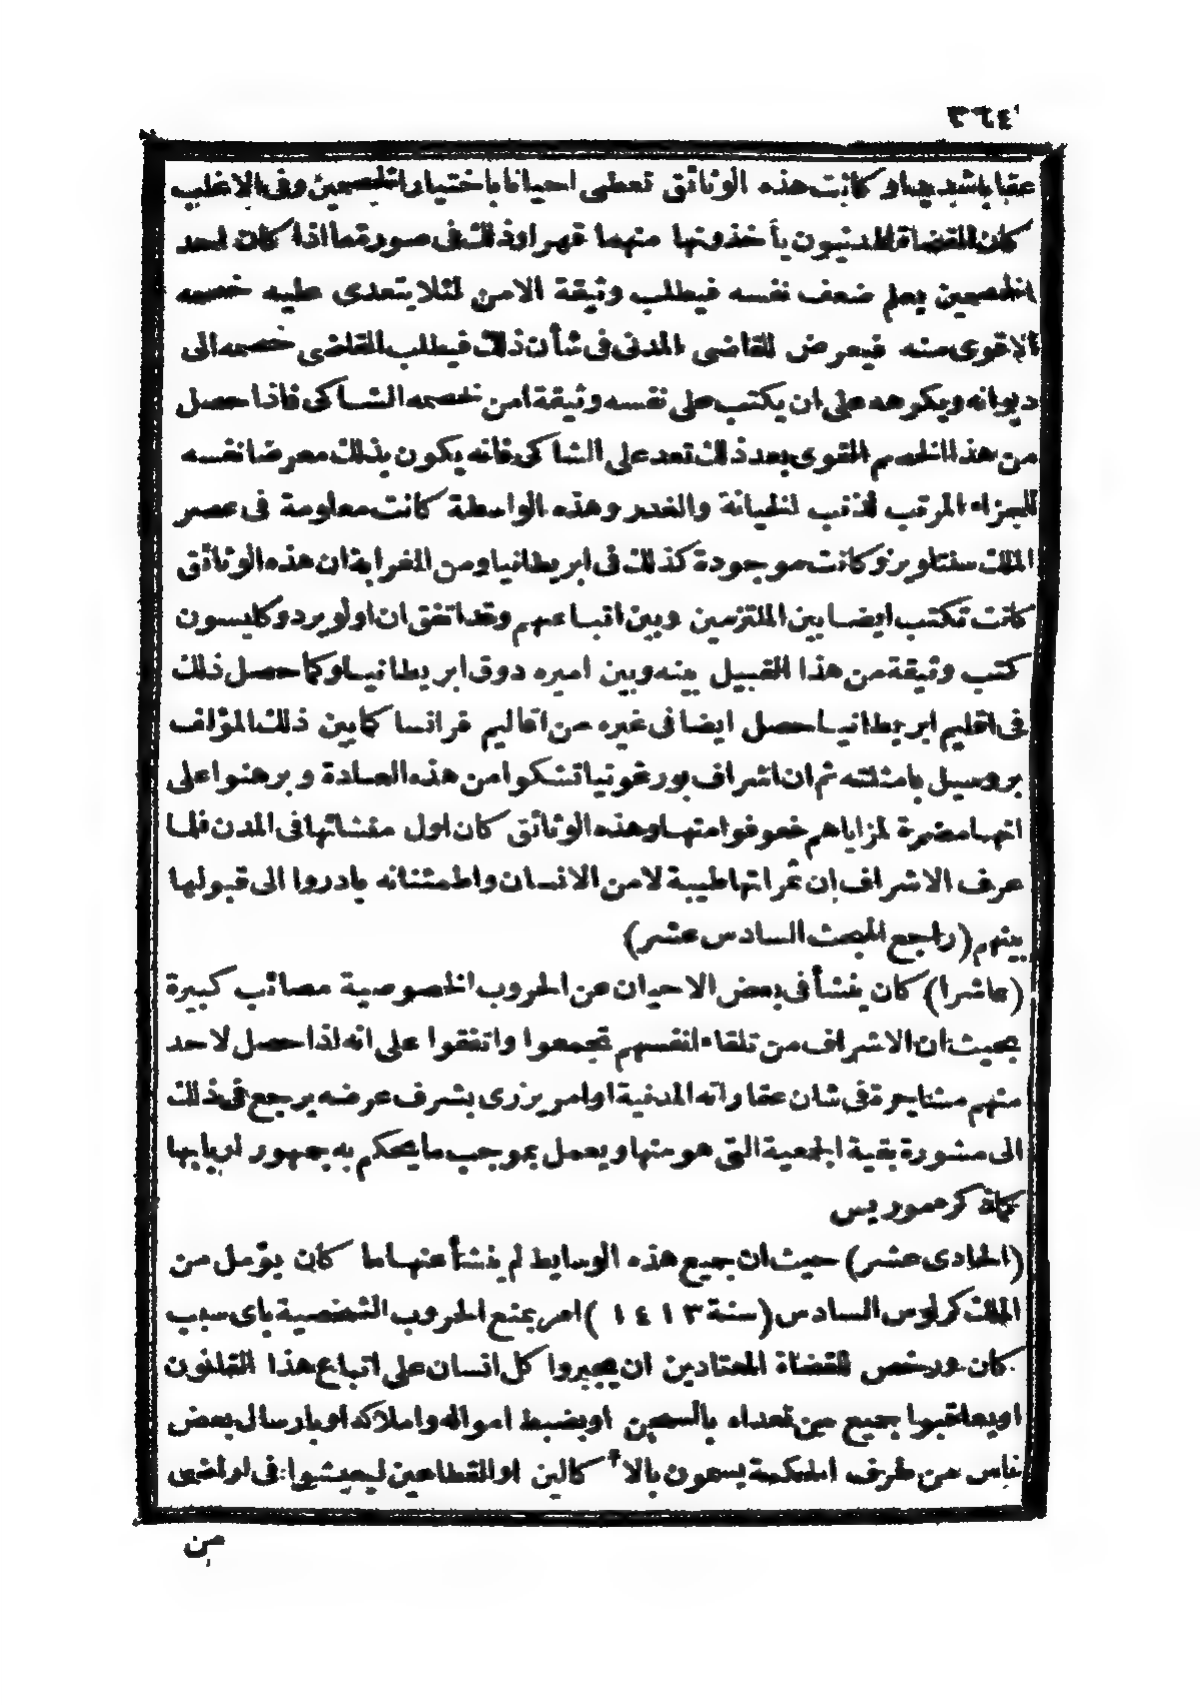 ٣٦٤
عقابا شديدا وكانت هذه الوثائق تعطى احيانا باختيار الخصمين وفى الاغلب
كان القضاة المدنيون يأخذونها منهما قهرا وذلك فى صورة ما اذا كان احد
الخصمين يعلم ضعف نفسه فيطلب وثيقة الامن لئلا يتعدى عليه خصمه
الاقوى منه فيعرض للقاضى المدنى فى شأن ذلك فيطلب القاضى خصمه الى
ديوانه ويكرهه على ان يكتب على نفسه وثيقة امن خصمه الشاكى فاذا حصل
من هذا الخصم القوى بعد ذلك تعد على الشاكى فانه يكون بذلك معرضا نفسه
للجزاء المرتب لذنب الخيانة والغدر وهذه الواسطة كانت معلومة فى عصر
الملك سنتلويز وكانت موجودة كذلك فى ابريطانيا ومن الغرابة ان هذه الوثائق
كانت تكتب ايضا بين الملتزمين وبين اتباعهم وقد اتفق ان اولويردوكليسون
كتب وثيقة من هذا القبيل بينه وبين اميره دوق ابريطانيا وكما حصل ذلك
فى اقليم ابريطانيا حصل ايضا فى غيره من اقاليم فرانسا كما بين ذلك المؤلف
بروسيل بامثلته ثم ان اشراف بورغونيا تشكوا من هذه العادة وبرهنوا على
انها مضرة لمزاياهم فعوفوا منها وهذه الوثائق كان اول منشائها فى المدن فلما
عرف الاشراف ان ثمراتها طيبة لامن الانسان واطمئنانه بادروا الى قبولها
بينهم (راجع المبحث السادس عشر)
(عاشرا) كان ينشأ فى بعض الاحيان عن الحروب الخصوصية مصائب كبيرة
بحيث ان الاشراف من تلقاء انفسهم تجمعوا واتفقوا على انه اذا حصل لاحد
منهم مشاجرة فى شان عقاراته المدنية او امر يزرى بشرف عرضه يرجع فى ذلك
الى مشورة بقية الجمعية التى هو منها ويعمل بموجب ما يحكم به جمهور اربابها
كما ذكره موريس
(الحادى عشر) حيث ان جميع هذه الوسايط لم ينشأ عنها ما كان يؤمل من
الملك كرلوس السادس (سنة ١٤١٣) امر بمنع الحروب الشخصية باى سبب
كان ورخص للقضاة المعتادين ان يجبروا كل انسان على اتباع هذا القانون
او يعاقبوا جميع من تعداه بالسجن او بضبط امواله واملاكه او بارسال بعض
ناس من طرف الحكمة يسمون بالاكالين او القطاعين ليعيشوا فى اراضى
من